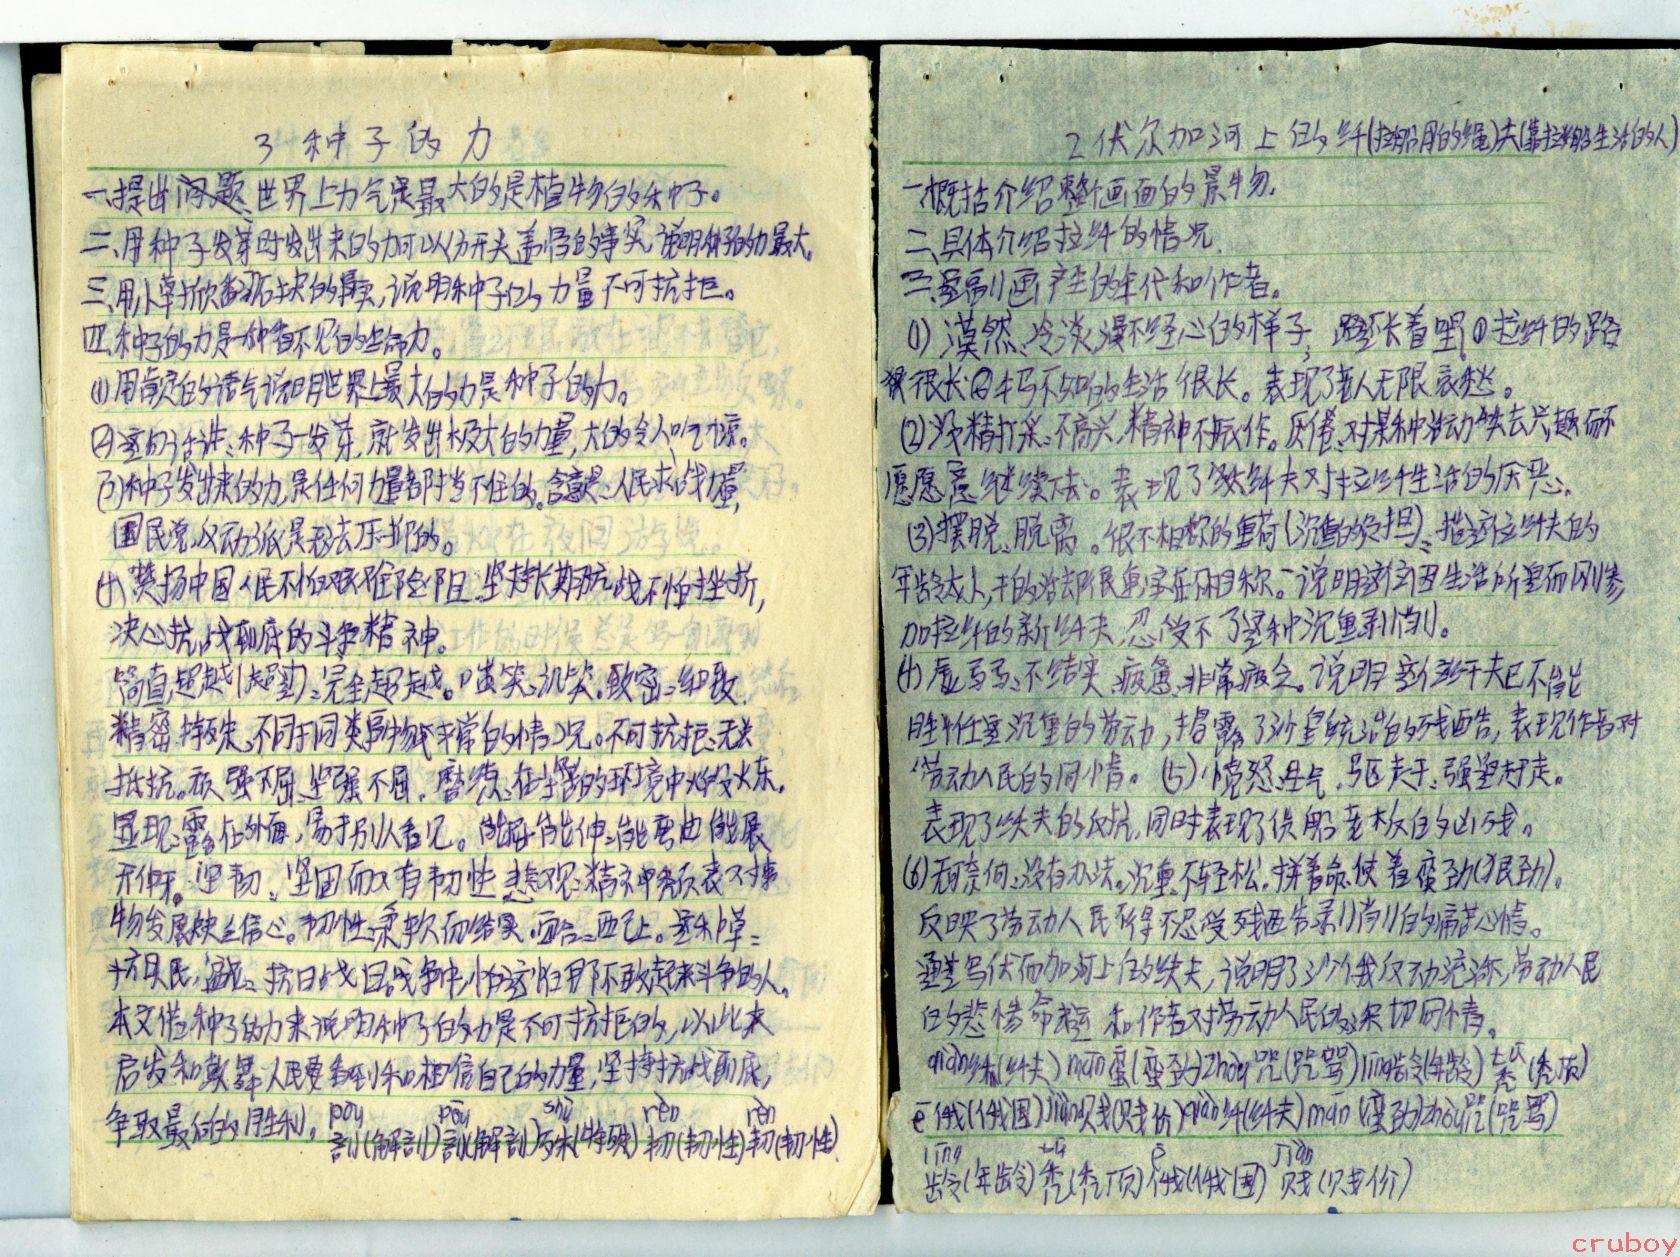 3 种子的力
一、提出问题、世界上力气最大的是植物的种子。
二、用种子发芽时发出来的力可以分开头盖骨的事实,说明种子的力最大。
三、用小草掀翻石块的事实,说明种子的力量不可抗拒。
四、种子的力是一种看不见的生命力。
(1)用肯定的语气说明世界上最大的力是种子的力。
(2)这句话讲:种子一发芽,就发出极大的力量,大的令人吃惊。
(3)种子发出来的力,是任何力量都阻挡不住的。含意是:人民求战力量,
国民党反动派是无法压抑的。
(4)赞扬中国人民不怕艰难险阻,坚持长期抗战不怕挫折,
决心抗战到底的斗争精神。
简直超越(超过):完全超越。嗤笑:讥笑。致密:细致
精密。特殊:不同于同类事物或平常的情况。不可抗拒:无法
抵抗。顽强不屈:坚强不屈。磨练:在艰苦的环境中锻炼。
显现:露在外面,易于别人看见。能屈能伸:能弯曲能展
开伸。坚韧:坚固而又有韧性。悲观:精神颓丧对事
物发展缺乏信心。韧性:柔软而结实。
抗日民 抗日战国战争中,怕这怕那不敢起来斗争的人。
本文借种子的力来说明种子的力是不可抗拒的,以此来
启发和鼓舞人民要看到和相信自己的力量,坚持抗战到底,
争取最后的胜利。 pōu pōu shū rèn rèn
剖(解剖)剖(解剖)殊(特殊)韧(韧性)韧(韧性)
2 伏尔加河上的纤(拉船用的绳)夫(靠拉船生活的人)
一概括介绍整个画面的景物。
二、具体介绍拉纤的情况。
三、介绍画产生的年代和作者。
(1)漠然:冷淡,漫不经心的样子, 路还长着呢①拉纤的路
很长②牛马不如的生活很长。表现了老人无限哀愁。
(2)没精打采:不高兴,精神不振作。厌倦:对某种活动失去兴趣而不
愿意继续下去。表现了纤夫对拉纤生活的厌恶。
(3)摆脱:脱离。很不相称的重荷(沉重的负担):指这位纤夫的
年龄太小,干的活却很重实在不相称。说明这位因生活所迫而刚参
加拉纤的新纤夫,忍受不了这种沉重剥削。
(4)虚弱:不结实,疲惫:非常疲乏。说明这位纤夫已不能
胜任这沉重的劳动,揭露了沙皇统治的残酷,表现作者对
劳动人民的同情。(5)愤怒:生气,驱赶:强迫赶走。
表现了纤夫的反抗,同时表现了货船老板的凶残。
(6)无可奈何:没有办法。沉重:不轻松。拼着命:使着蛮劲(狠劲)。
反映了劳动人民不得不忍受残酷剥削的痛苦心情。
通过写伏尔加河上的纤夫,说明了沙俄反动沈,劳动人民
的悲惨命运和作者对劳动人民的深切同情。
qiàn纤(纤夫)mán蛮(蛮劲)zhòu咒(咒骂)líng龄(年龄)tū秃(秃顶)
é俄(俄国)jiàn贱(贱价)qiàn纤(纤夫)mán(蛮劲)zhòu咒(咒骂)
líng tū é jiàn
龄(年龄)秃(秃顶)俄(俄国)贱(贱价)
cruboy